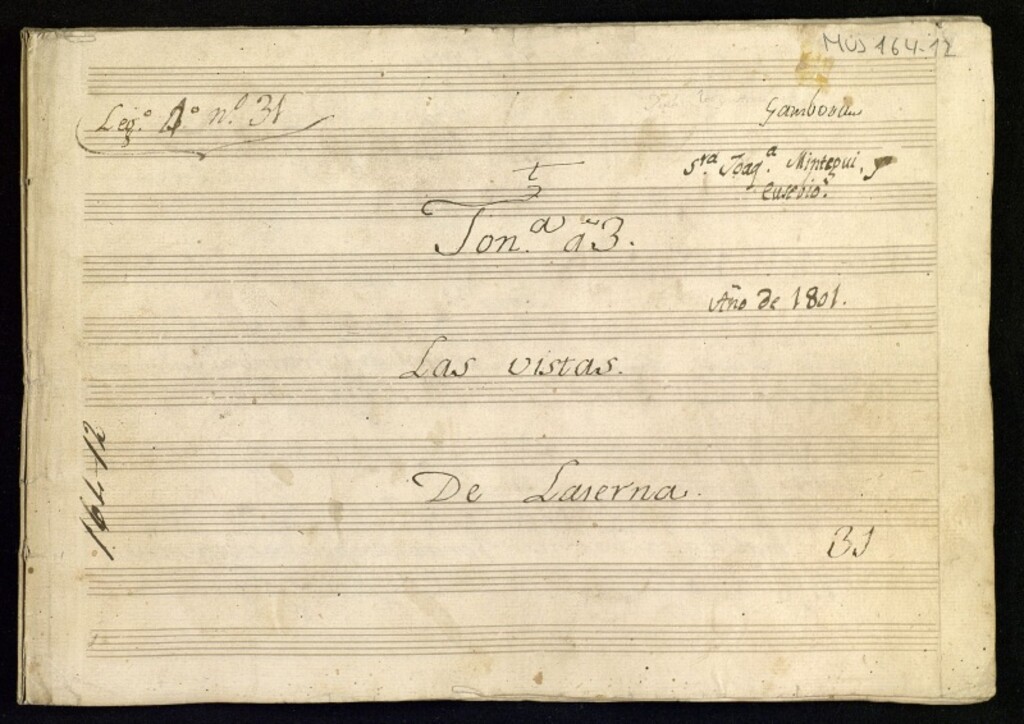 MUS 164-12
Leg.º 1.º nº 31
Gamborino
Sra. Joaq.a Mintegui, y
Eusebio.
t
Ton.a a 3.
Año de 1801.
Las vistas.
De Laserna.
31
164-12